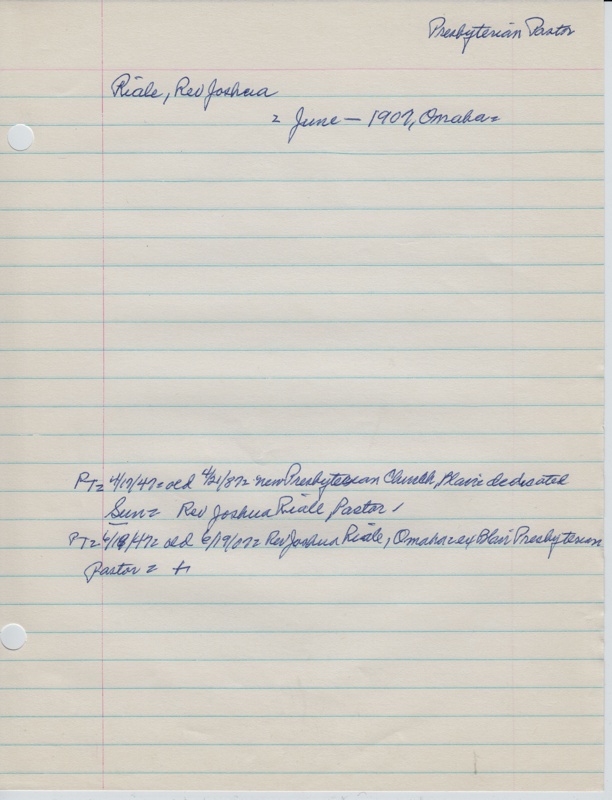 Presbyterian Pastor
Riale, Rev Joshua
= June — 1907, Omaha=
PT= 4/17/47= old 4/21/87= new Presbyterian Church, Blair dedicated
Sun= Rev Joshua Riale Pastor,
PT= 6/19/47= old 6/19/07= Rev Joshua Riale, Omaha= ex Blair Presbyterian
Pastor= +